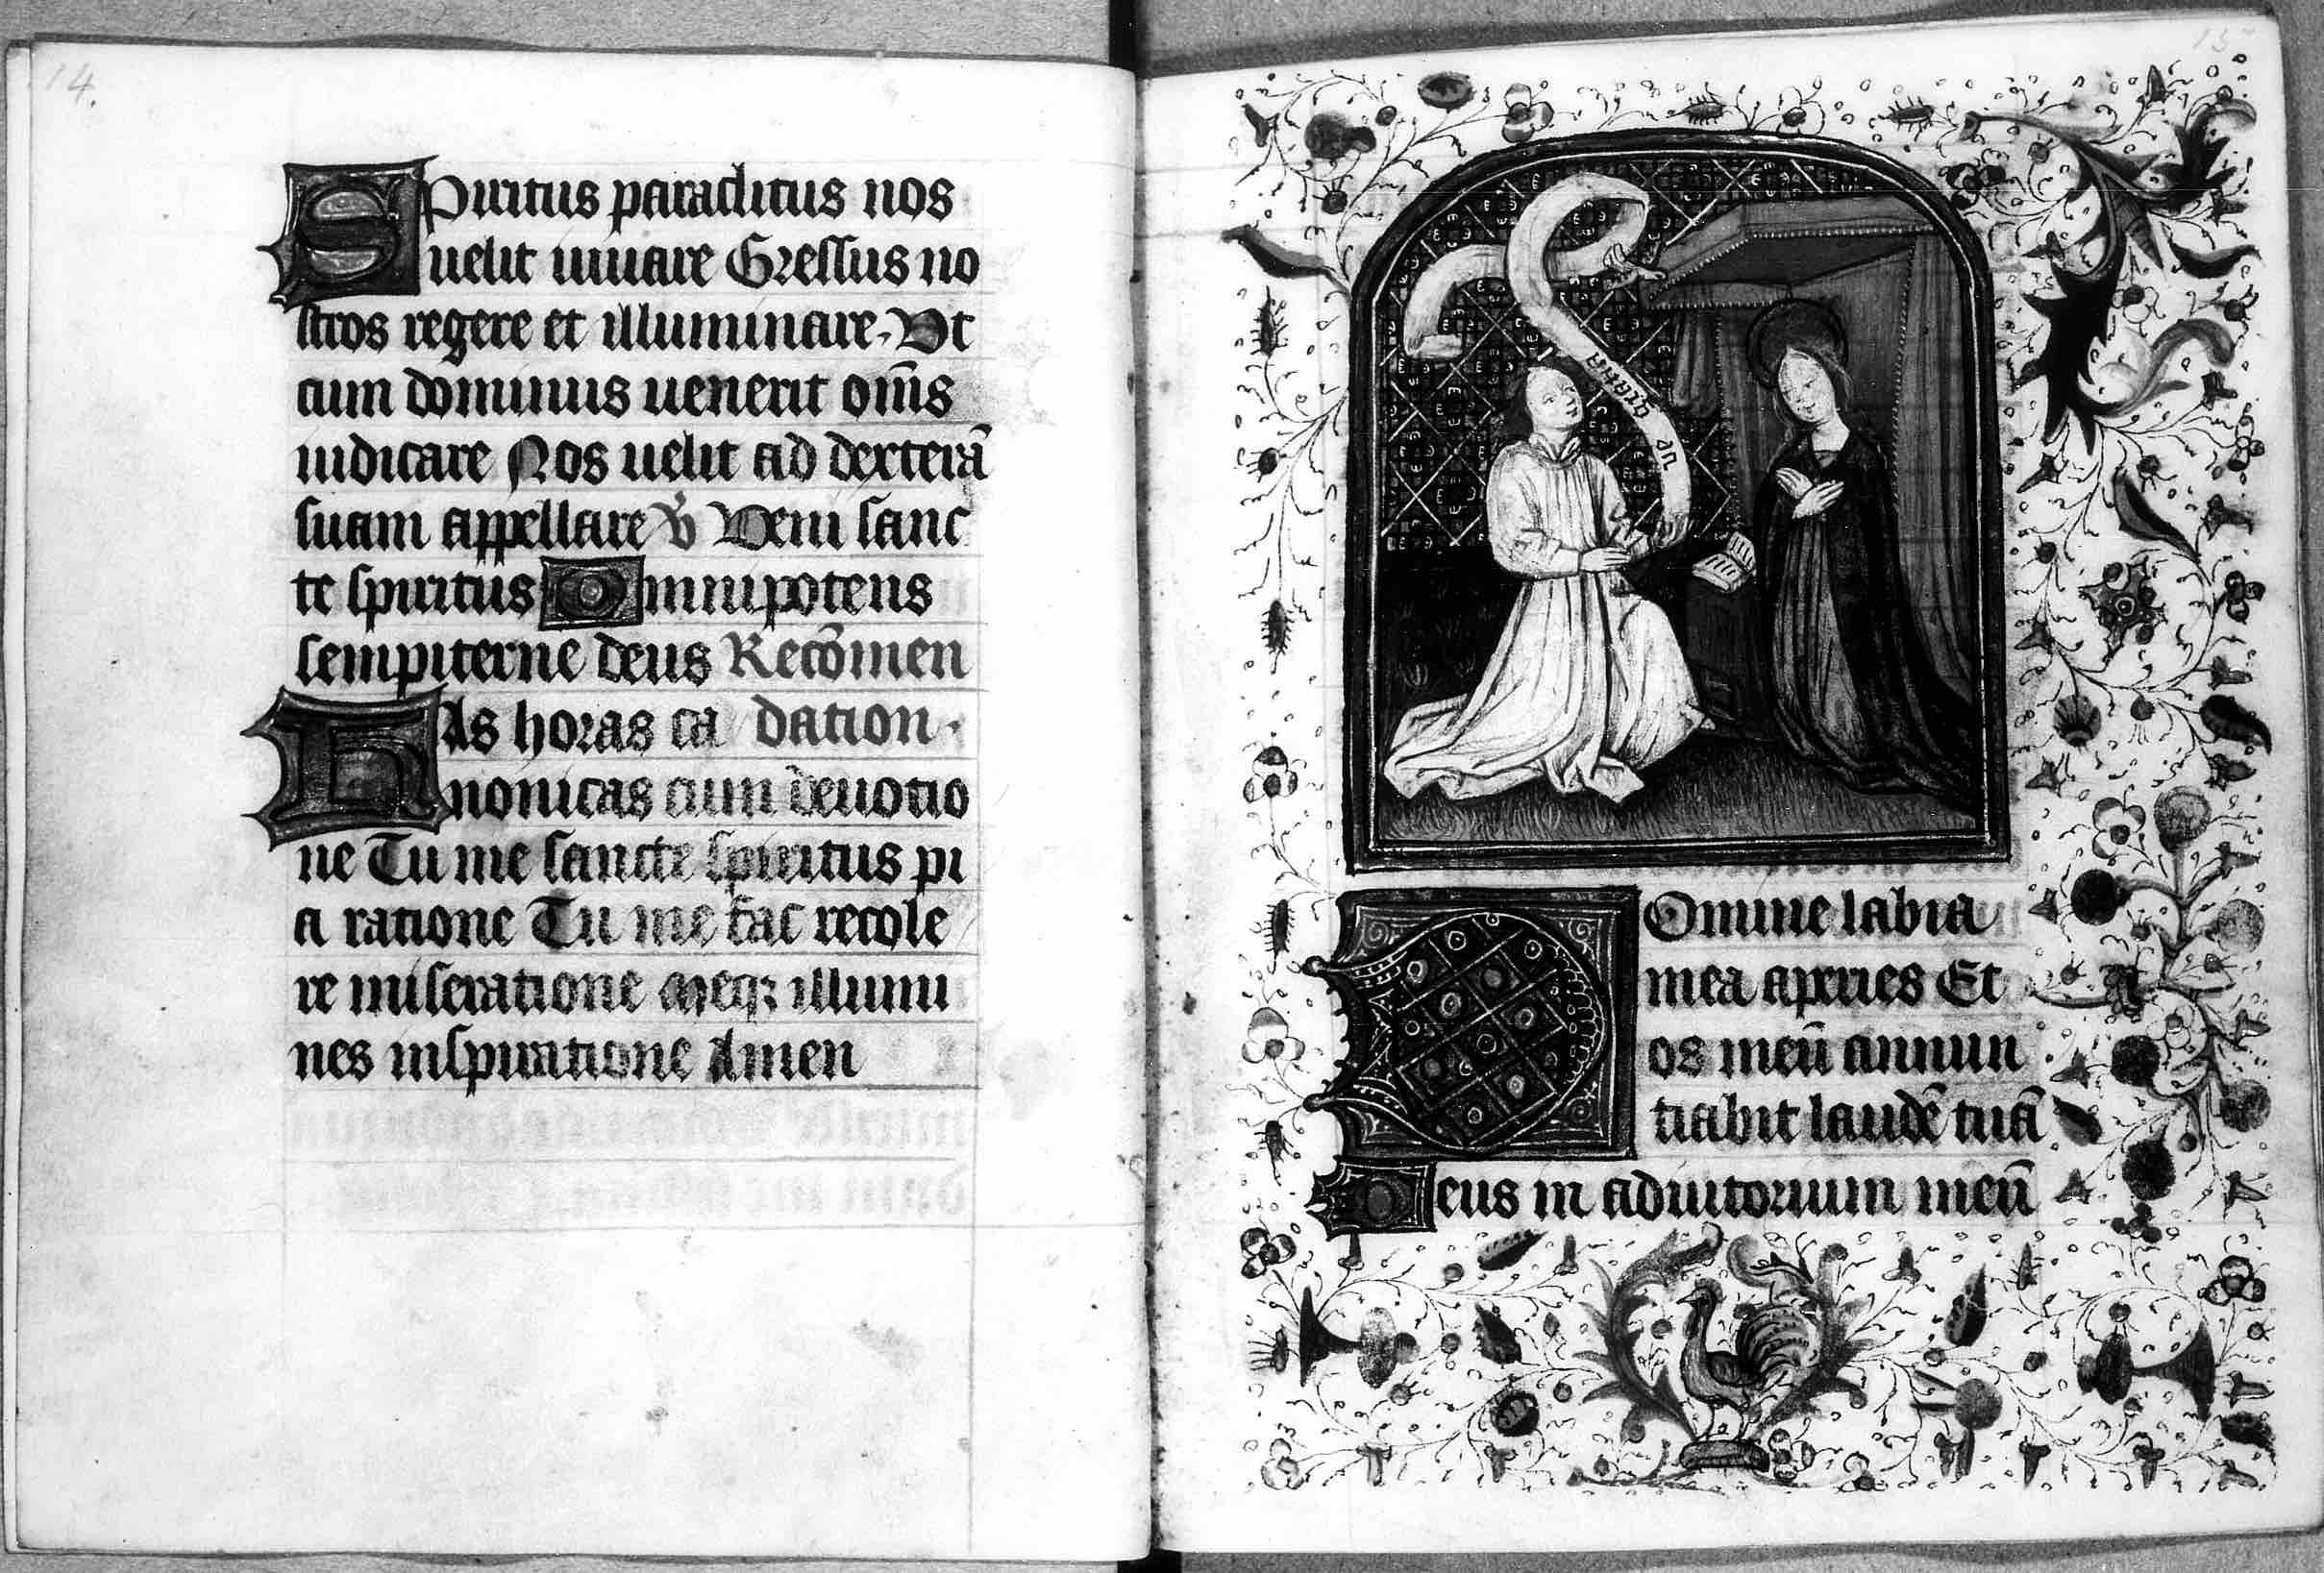 14.
Spiritus paraclitus nos
uelit iuuare Gressus no
stros regere et illuminare. Vt
cum dominus uenerit om̄s
iudicare Nos uelit ad dexterā
suam appellare v̄ Veni sanc
te spiritus Omnipotens
sempiterne deus Recōmen
Has horas ca dation.
nonicas cum deuotio
ne Tu me sancte spiritus pi
a ratione Tu me fac recole
re miseratione Meqꝫ illumi
nes inspiratione Amen
15
Domine labia
mea aperies Et
os meū annun
tiabit laudē tuā
Deus in adiutorium meū